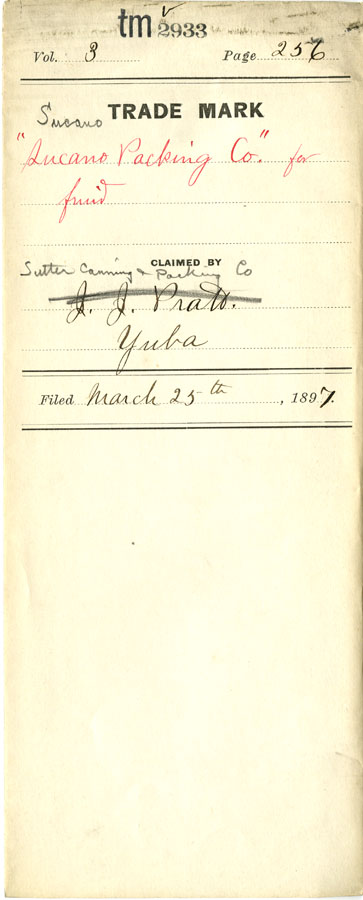 tm 2933
Vol. 3 Page 256
Sucano TRADE MARK
"Sucano Packing Co." for
fruit
CLAIMED BY
Sutter Canning & Packing Co
J. J. Pratt.
Yuba
Filed March 25th, 1897.